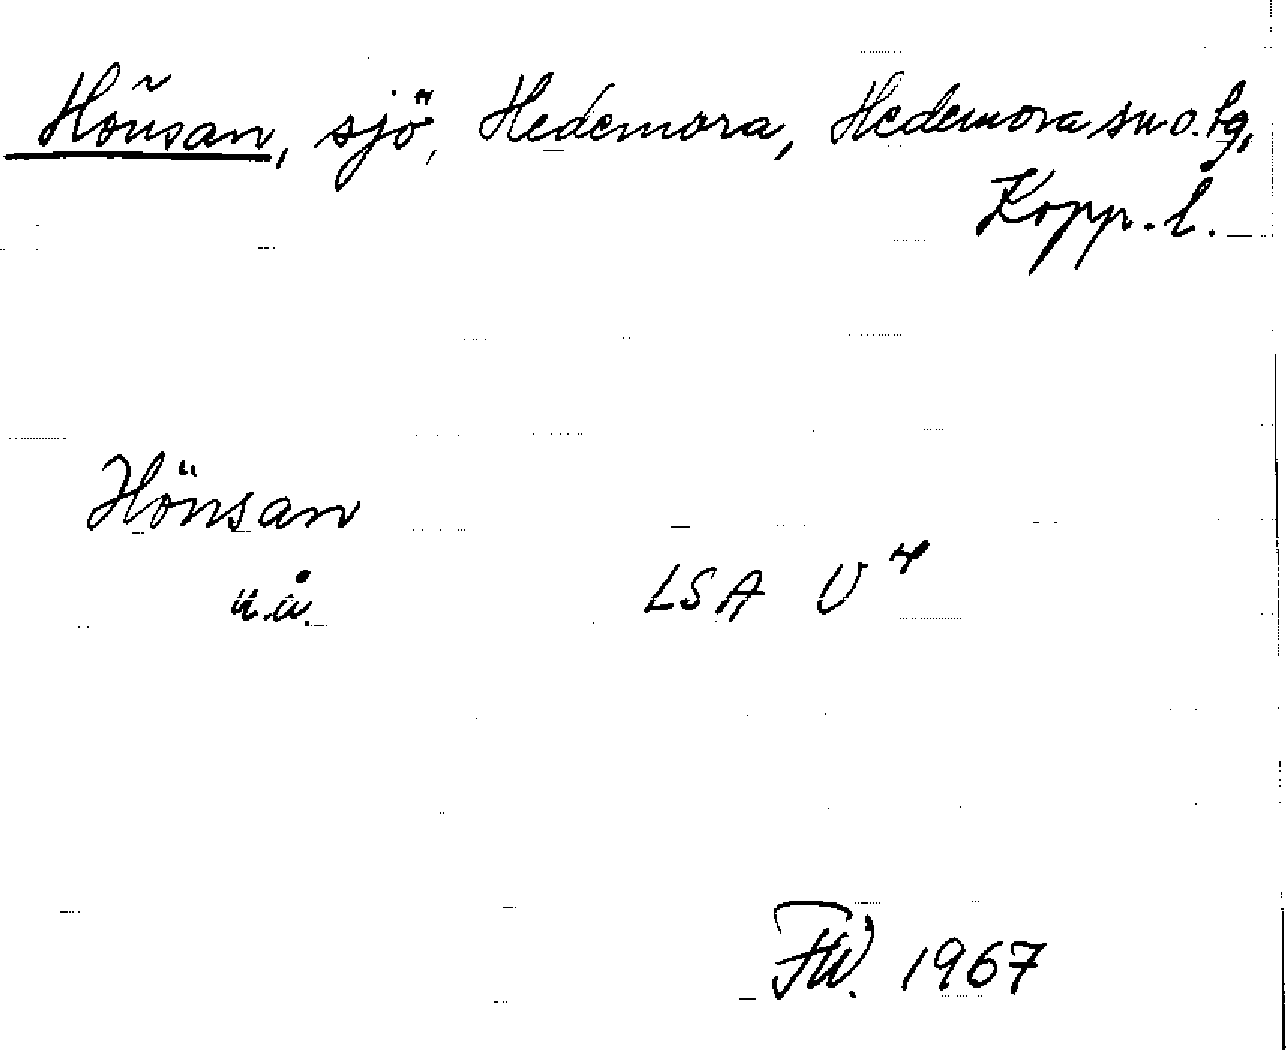 Hönsan, sjö, Hedemora, Hedemora sn o. tg,
Kopp. l.
Hönsan
u.å. LSA U 4
FW. 1967